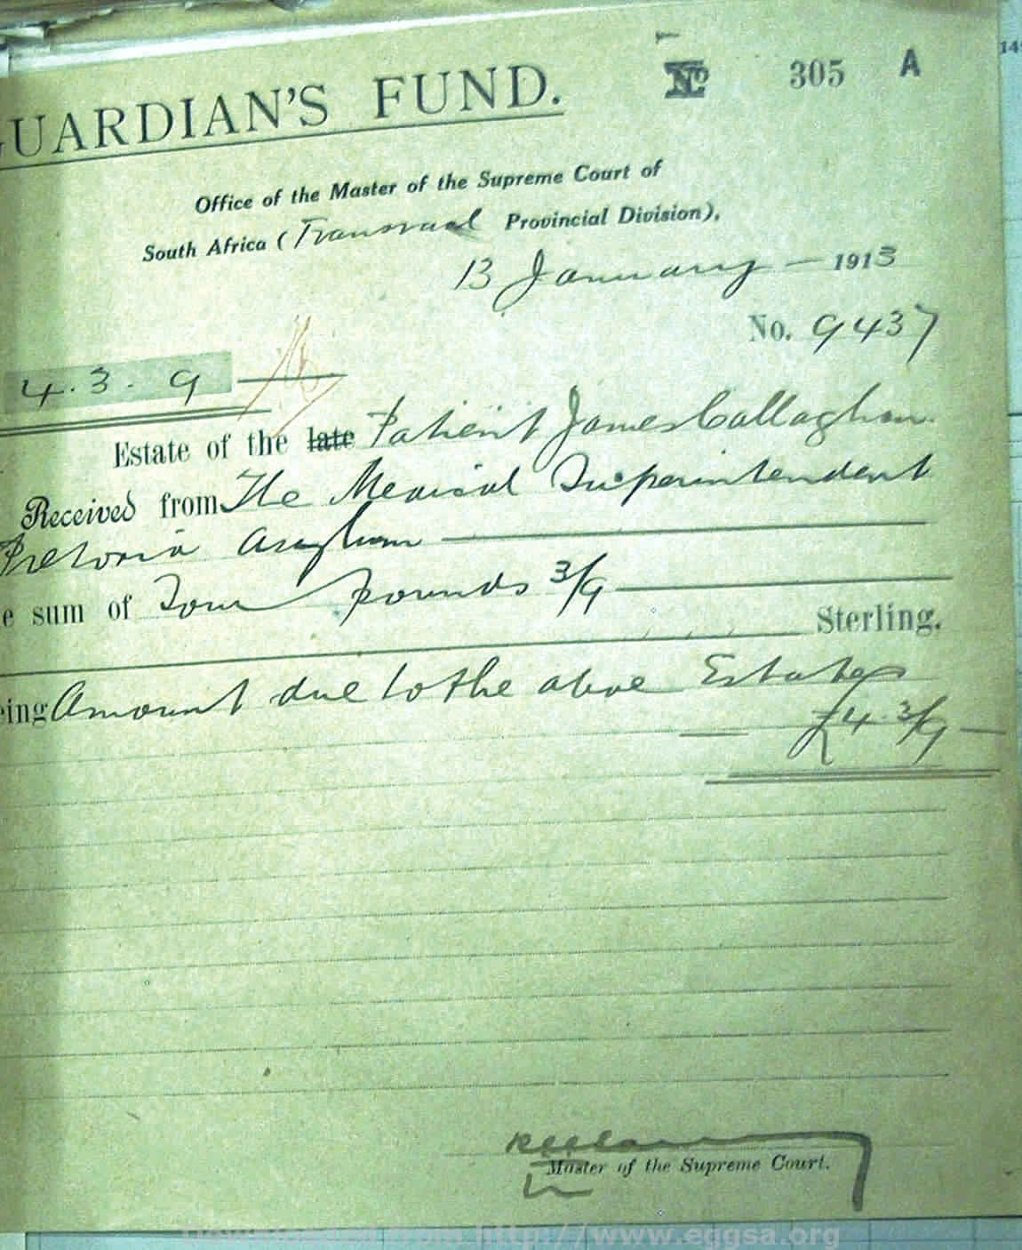 GUARDIAN'S FUND.
No 305 A
14
Office of the Master of the Supreme Court of
South Africa (Transvaal Provincial Division),
13 January — 1913
No. 9437
4.3.9
Estate of the late Patient James Callaghan
Received from The Medical Superintendent
Pretoria Asylum
e sum of Four Pounds 3/9
Sterling.
ing Amount due to the above Estate
£4.3/9
Master of the Supreme Court.
Downloaded from http://www.eggsa.org